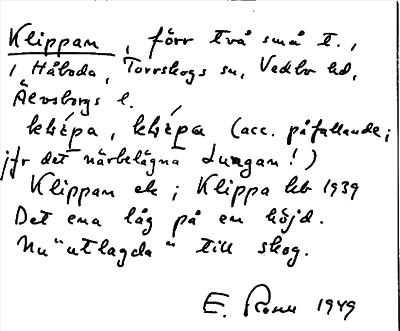 Klippan, förr två små t.,
i Håboda, Torrskogs sn, Vedbo hd,
Älvsborgs l.
klıpa, klıpa (acc. påfallande;
jfr det närbelägna Lungan!)
Klippan ek; Klippa hb 1939
Det ena låg på en höjd.
Nu "utlagda" till skog.
E. 1949